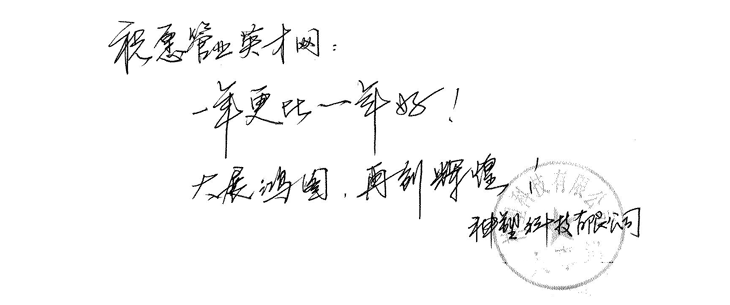 祝愿管业英才网：
一年更比一年好！
大展鸿图，再创辉煌！
神塑科技有限公司
科技有限公